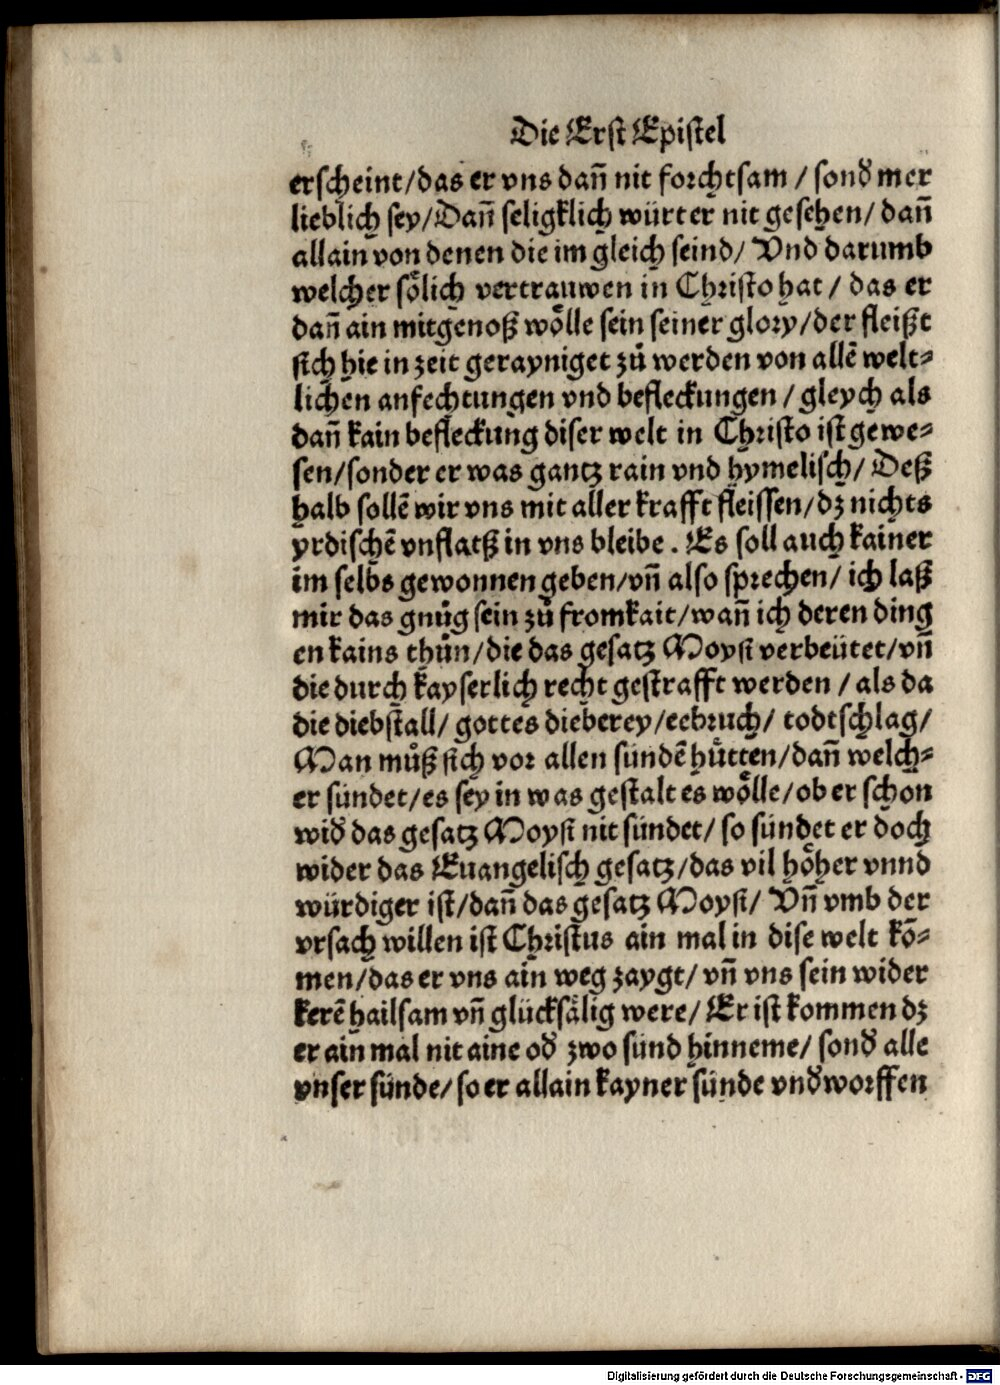 Die Erst Epistel
erscheint/das er vns dañ nit forchtsam / sonđ mer
lieblich sey/Dañ seligklich würt er nit gesehen/ dañ
allain von denen die im gleich seind/ Vnd darumb
welcher soͤlich vertrauwen in Christo hat / das er
dañ ain mitgenoß woͤlle sein seiner glory/der fleißt
sich hie in zeit gerayniget zuͦ werden von allẽ welt⸗
lichen anfechtungen vnd befleckungen / gleych als
dañ kain befleckung diser welt in Christo ist gewe⸗
sen/sonder er was gantz rain vnd hymelisch/ Deß
halb sollẽ wir vns mit aller krafft fleissen/dz nichts
yrdischẽ vnflatß in vns bleibe . Es soll auch kainer
im selbs gewonnen geben/vñ also sprechen/ ich laß
mir das gnuͦg sein zuͦ fromkait/wañ ich deren ding
en kains thuͦn/die das gesatz Moysi verbeütet/vñ
die durch kayserlich recht gestrafft werden / als da
die diebstall/ gottes dieberey/eebruch/ todtschlag/
Man muͦß sich vor allen sündẽ huͤtten/dañ welch⸗
er sündet/es sey in was gestalt es woͤlle/ob er schon
widđ das gesatz Moysi nit sündet/ so sündet er doch
wider das Euangelisch gesatz/das vil hoͤher vnnd
würdiger ist/dañ das gesatz Moysi/ Vñ vmb der
vrsach willen ist Christus ain mal in dise welt kõ⸗
men/das er vns ain weg zaygt/ vñ vns sein wider
kerẽ hailsam vñ glücksaͤlig were/ Er ist kommen dz
er ain mal nit aine ođ zwo sünd hinneme/ sonđ alle
vnser sünde/ so er allain kayner sünde vnđworffen
Digitalisierung gefördert durch die Deutsche Forschungsgemeinschaft - DFG